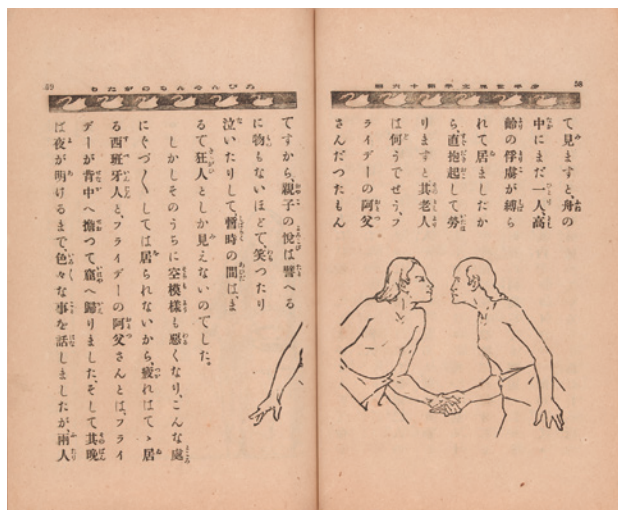 58
少年世界文学第十六編
て見ますと、舟の
中にまだ一人、高
齢の俘虜が縛ら
れて居ましたか
ら、直抱起して勞
りますと其老人
は何うでせう、フ
ライデーの阿父
さんだつたもん
59
ろびんそんものがたり
ですから、親子の悅は譬へる
に物もないほどで、笑つたり
泣いたりして、暫時の間は、ま
るで狂人としか見えないのでした。
しかしそのうちに空模樣も惡くなり、こんな處
にぐづ〱しては居られないから、疲れはてゝ居
る西班牙人と、フライデーの阿父さんとは、フライ
デーが背中へ擔つて窟へ歸りました、そして其晩
は夜が明けるまで、色々な事を話しましたが、兩人